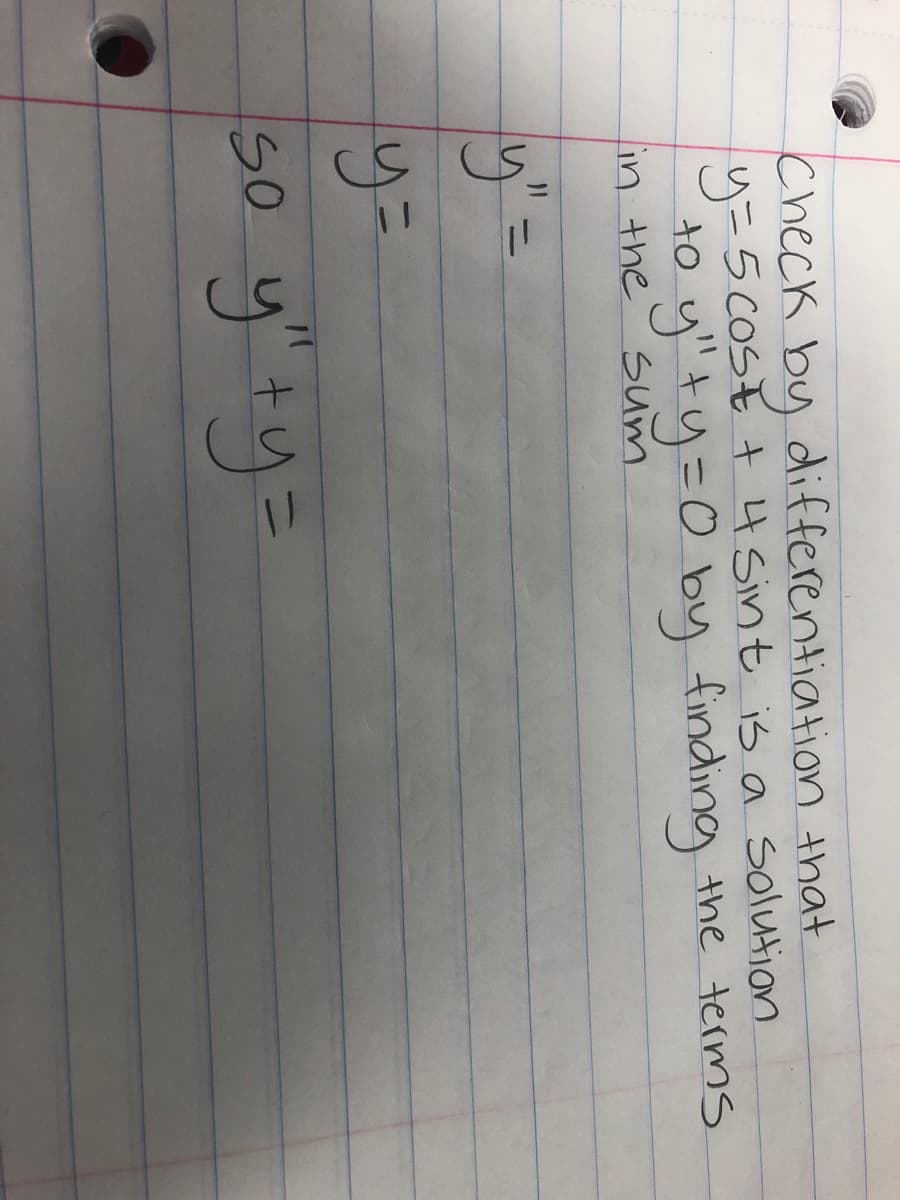 Check by differentiation that
y=5cost + 4sint is a solution
to y"+y=0 by finding the terms
in the sum
y"=
y=
so y"+y=